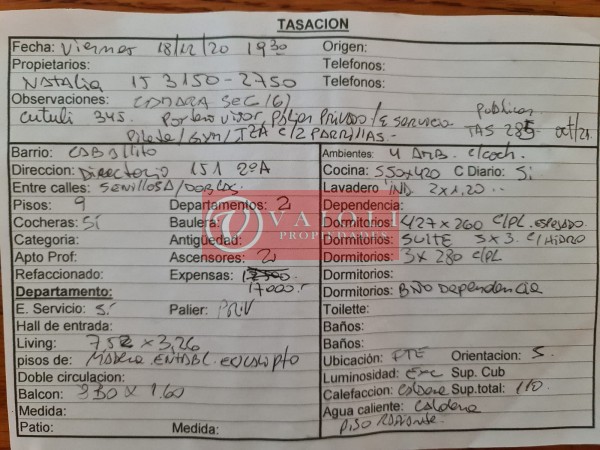 TASACION
Fecha: Viernes 18/12/20 1930 Origen:
Propietarios: Telefonos:
NATALIA 15 3150-2750 Telefonos:
Observaciones: CAMARA SEG (6)
Cutuli 345. Portero visor, Palier Privado/E servicio Publicar
Pileta/Gym/TZA C/2 PARRILLAS. TAS 285 oct/21
Barrio: CABALLITO
Direccion: Directorio 151 2ºA
Entre calles: SENILLOSA/DOBLAS
Pisos: 9 Departamentos: 2
Cocheras: Sí Baulera:
Categoria: Antigüedad:
Apto Prof: Ascensores: 2
Refaccionado: Expensas: 12500
Departamento: 17000.-
E. Servicio: Sí Palier: PRIV
Hall de entrada:
Living: 752 x 3,26
pisos de: Madera. ENTABL. eucalipto
Doble circulacion:
Balcon: 330 x 1.60
Medida:
Patio: Medida:
Ambientes: 4 AMB. c/coch.
Cocina: 550x420 C Diario: Sí
Lavadero IND 2x1,20
Dependencia:
Dormitorios: 427x260 C/PL.
Dormitorios: SUITE 5x3. C/HIDRO
Dormitorios: 3x280 C/PL
Dormitorios: BÑO Dependencia
Toilette:
Baños:
Baños:
Ubicación: FTE Orientacion: S.
Luminosidad: EXC Sup. Cub
Calefaccion: Caldera Sup.total: 110
Agua caliente: Caldera
PISO RADIANTE.
VALOLI
PROPIEDADES